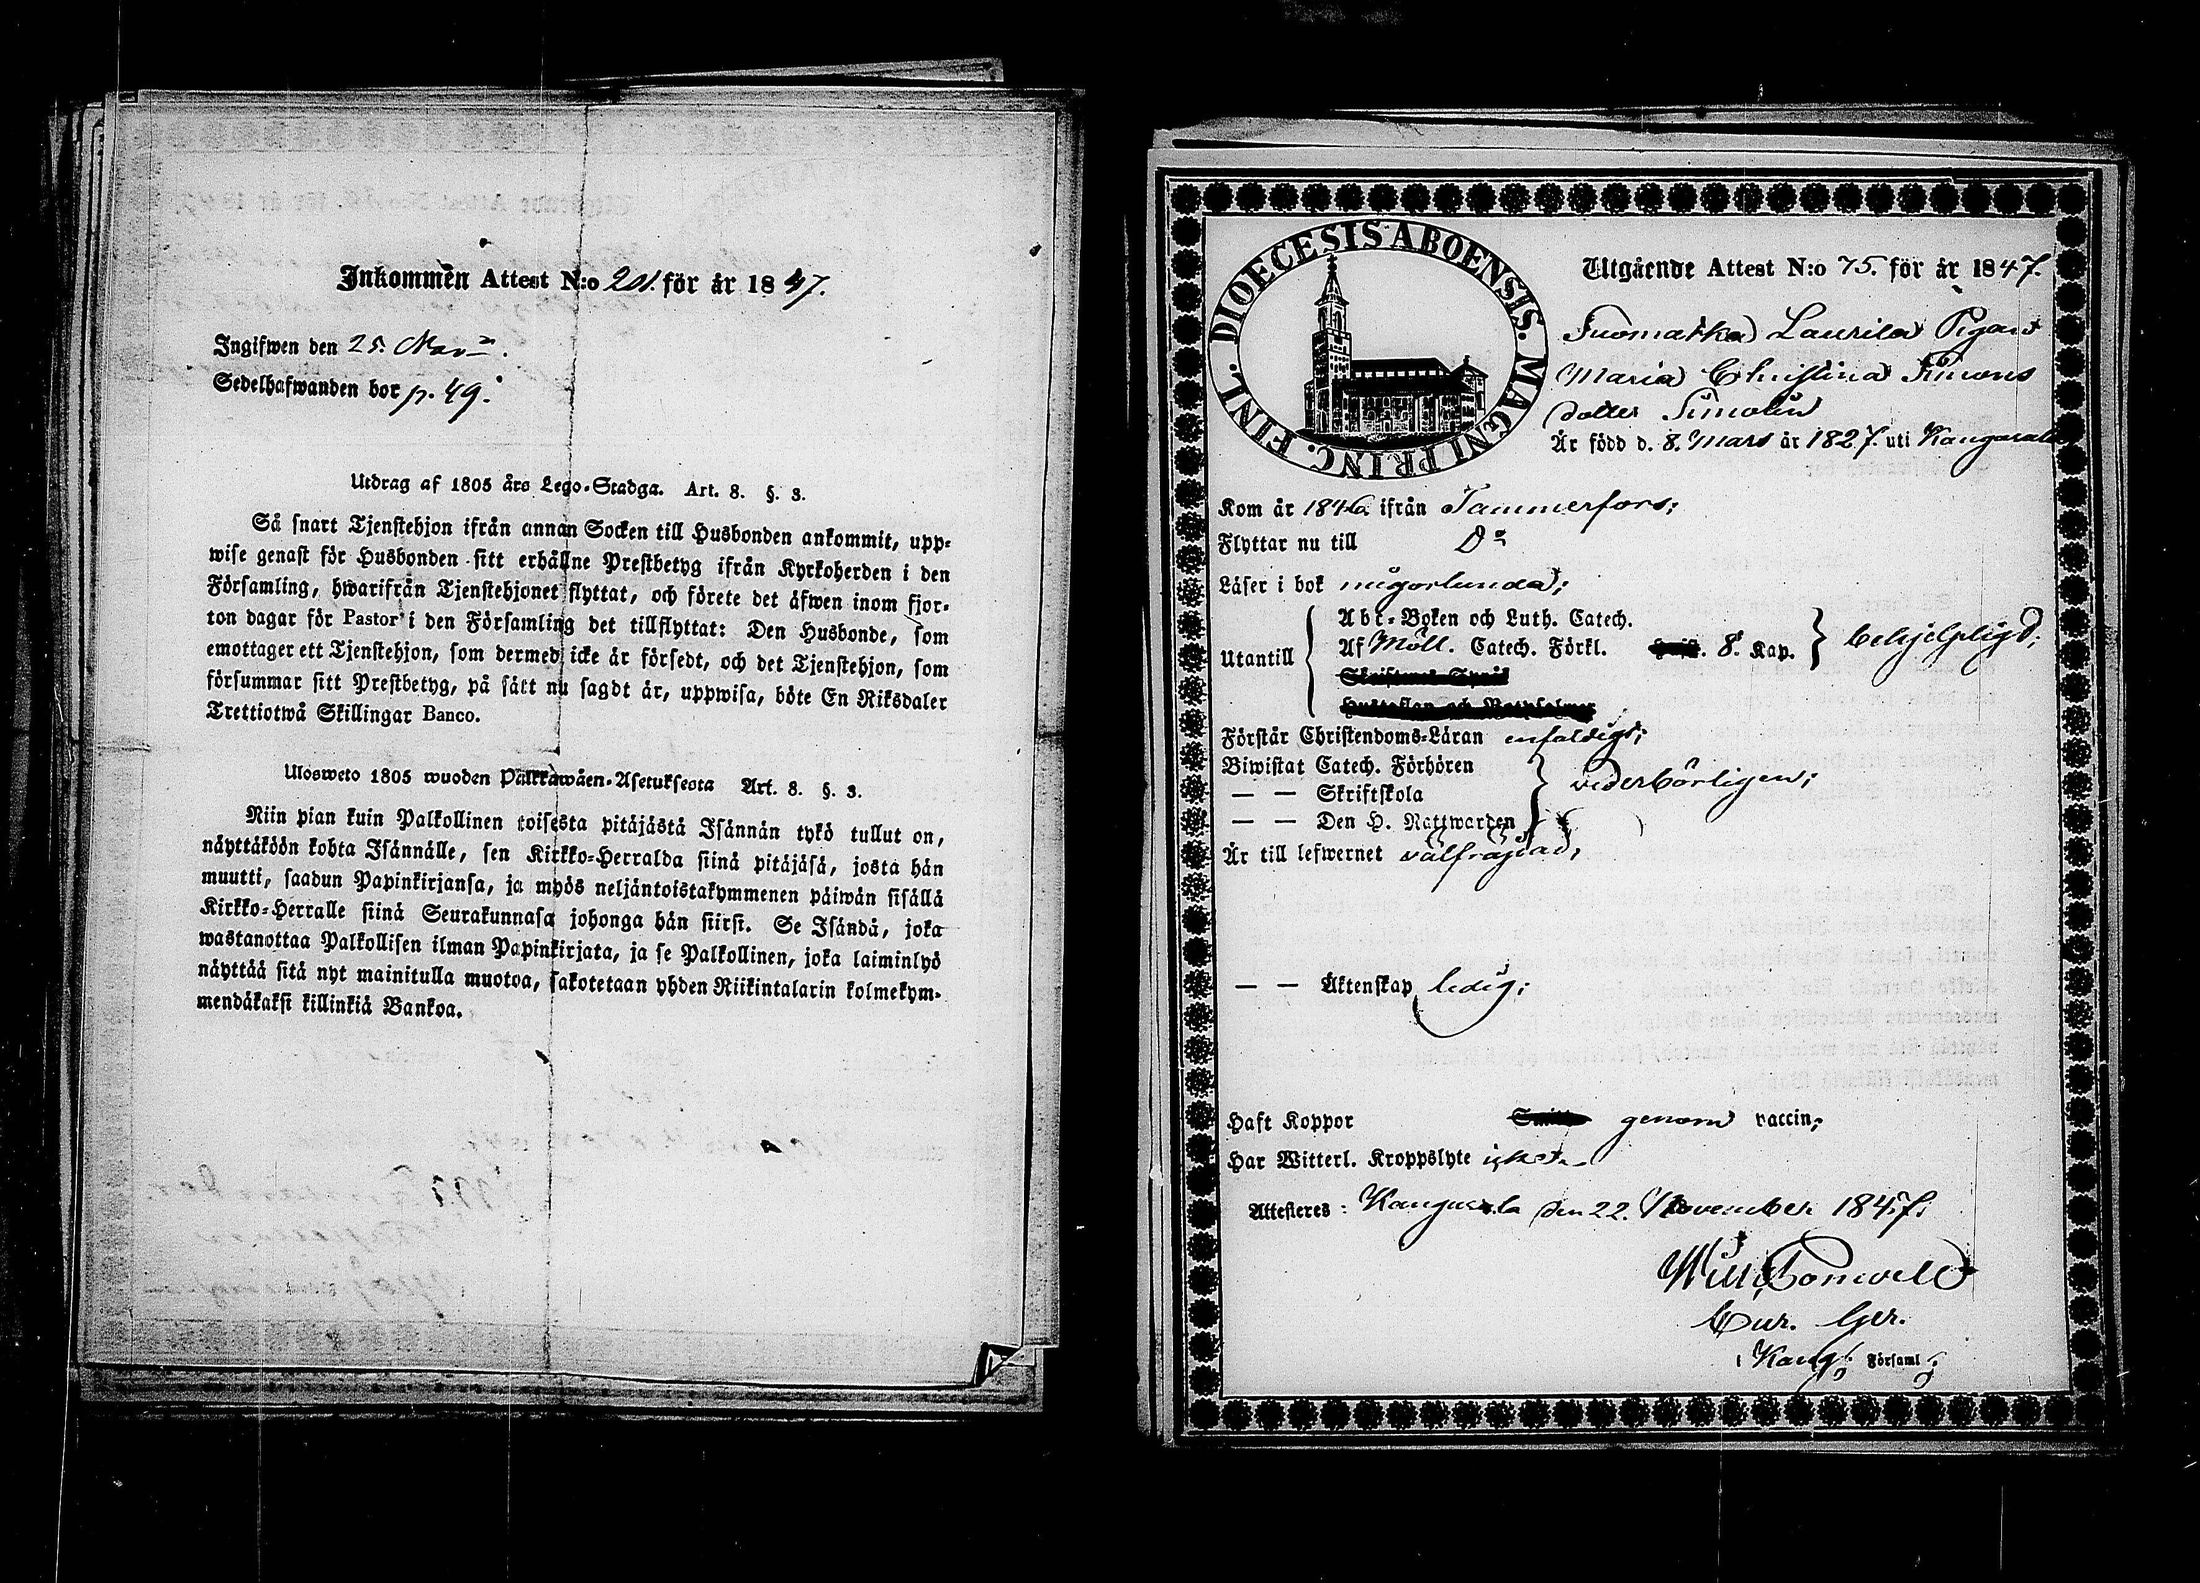 Inkommen Attest N:o 201. för år 1847.
Ingifwen den 25. Nov.
Sedelhafwanden bor p. 49.
Utdrag af 1805 års Lego-Stadga. Art. 8. §. 3.
Så snart Tjenstehjon ifrån annan Socken till Husbonden ankommit, upp-
wise genast för Husbonden sitt erhållne Prestbetyg ifrån Kyrkoherden i den
Församling, hwarifrån Tjenstehjonet flyttat, och förete det äfwen inom fjor-
ton dagar för Pastor i den Församling det tillflyttat: Den Husbonde, som
emottager ett Tjenstehjon, som dermed icke är försedt, och det Tjenstehjon, som
försummar sitt Prestbetyg, på sätt nu sagdt är, uppwisa, böte En Riksdaler
Trettiotwå Skillingar Banco.
Ulosweto 1805 wuoden Palkkawäen-Asetuksesta Art. 8. §. 3.
Niin pian kuin Palkollinen toisesta pitäjästä Isännän tykö tullut on,
näyttäköön kohta Isännälle, sen Kirkko-Herralda siinä pitäjäsä, josta hän
muutti, saadun Papinkirjansa, ja myös neljäntoistakymmenen päiwän sisällä
Kirkko-Herralle siinä Seurakunnasa johonga hän siirsi. Se Isändä, joka
wastanottaa Palkollisen ilman Papinkirjata, ja se Palkollinen, joka laiminlyö
näyttää sitä nyt mainitulla muotoa, sakotetaan yhden Riikintalarin kolmekym-
mendäkaksi killinkiä Bankoa.
DIOECESIS ABOENSIS. MAGNI PRINC. FINL.
Utgående Attest N:o 75. för år 1847.
Suomatka Laurila Pigan
Maria Christina Simons
dotter Simolin
Är född d. 8. Mars år 1827. uti Kangasala
Kom år 1846. ifrån Tammerfors;
Flyttar nu till Do
Läser i bok någorlunda;
Utantill
Abc-Boken och Luth. Catech.
Af Möll. Catech. Förkl. 8. Kap. behjelpligt;
Förstår Christendoms-Läran enfaldigt;
Biwistat Catech. Förhören
— — Skriftskola vederbörligen;
— — Den H. Nattwarden
Är till lefwernet välfräjdad;
— — Äktenskap ledig;
Haft Koppor genom vaccin;
Har Witterl. Kroppslyte icke.
Attesteres: Kangasala den 22. November 1847.
Cur. Ger.
i Kang. Församl.